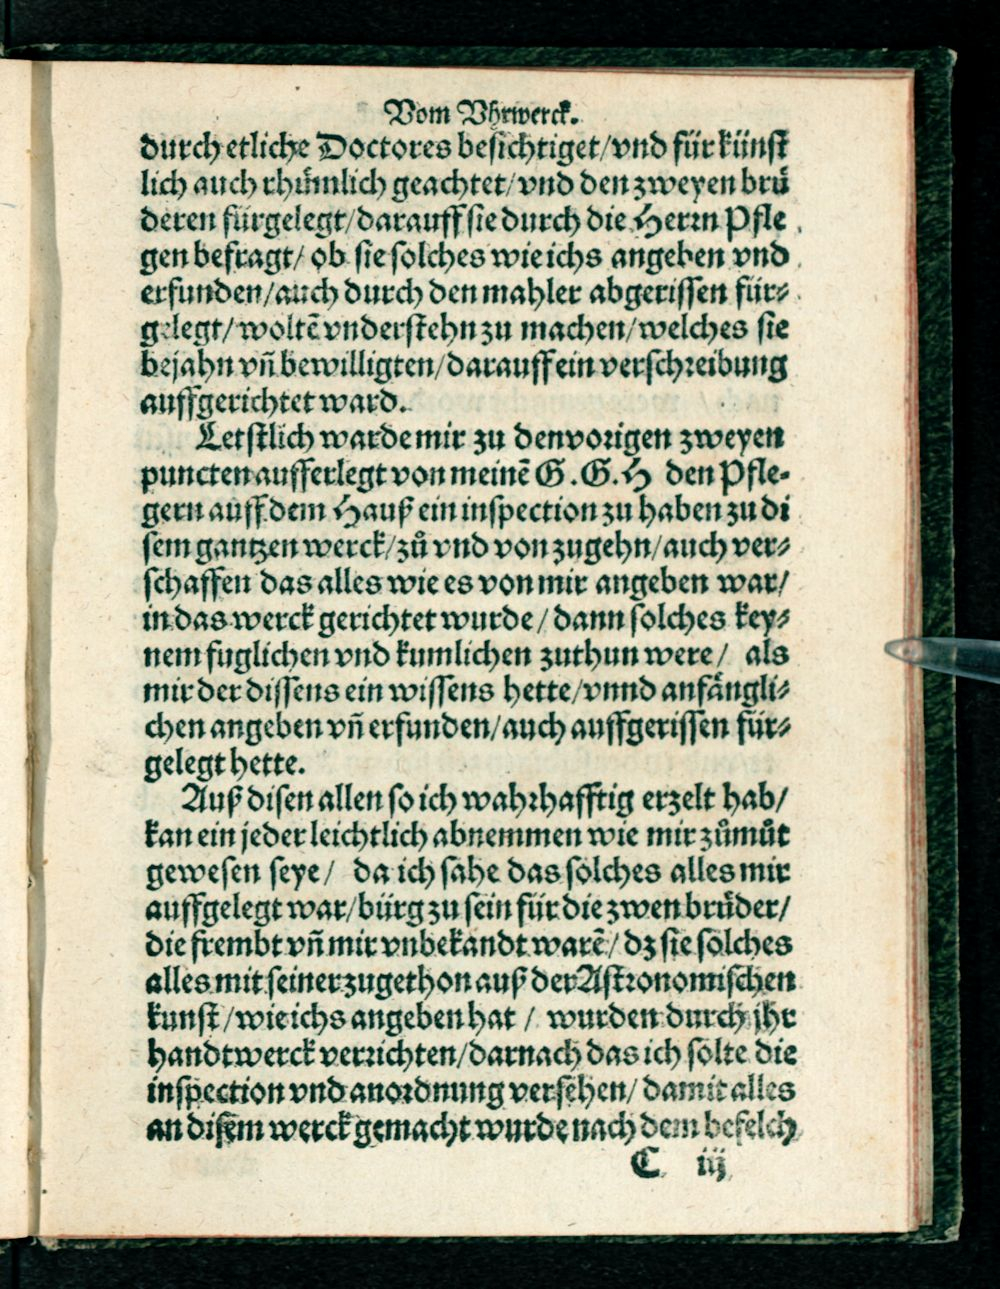 Vom Vhrwerck.
durch etliche Doctores besichtiget/vnd für künst
lich auch rhůmlich geachtet/vnd den zweyen brů
deren fürgelegt/darauff sie durch die Herrn Pfle
gen befragt/ ob sie solches wie ichs angeben vnd
erfunden/auch durch den mahler abgerissen für⸗
gelegt/woltē vnderstehn zu machen/welches sie
bejahn vñ bewilligten/darauff ein verschreibung
auffgerichtet ward.
Letstlich warde mir zu den vorigen zweyen
puncten aufferlegt von meinē G.G.H den Pfle-
gern auff dem Hauß ein inspection zu haben zu di
sem gantzen werck/zů vnd von zugehn/auch ver⸗
schaffen das alles wie es von mir angeben war/
in das werck gerichtet wurde/dann solches key⸗
nem fuglichen vnd kumlichen zuthun were/ als
mir der dissens ein wissens hette/vnnd anfängli⸗
chen angeben vñ erfunden/auch auffgerissen für⸗
gelegt hette.
Auß disen allen so ich wahrhafftig erzelt hab/
kan ein jeder leichtlich abnemmen wie mir zůmůt
gewesen seye/ da ich sahe das solches alles mir
auffgelegt war/bürg zu sein für die zwen brůder/
die frembt vñ mir vnbekandt warē/dz sie solches
alles mit seiner zugethon auß der Astronomischen
kunst/wie ichs angeben hat/ wurden durch jhr
handtwerck verrichten/darnach das ich solte die
inspection vnd anordnung versehen/damit alles
an disem werck gemacht wurde nach dem befelch
C iij